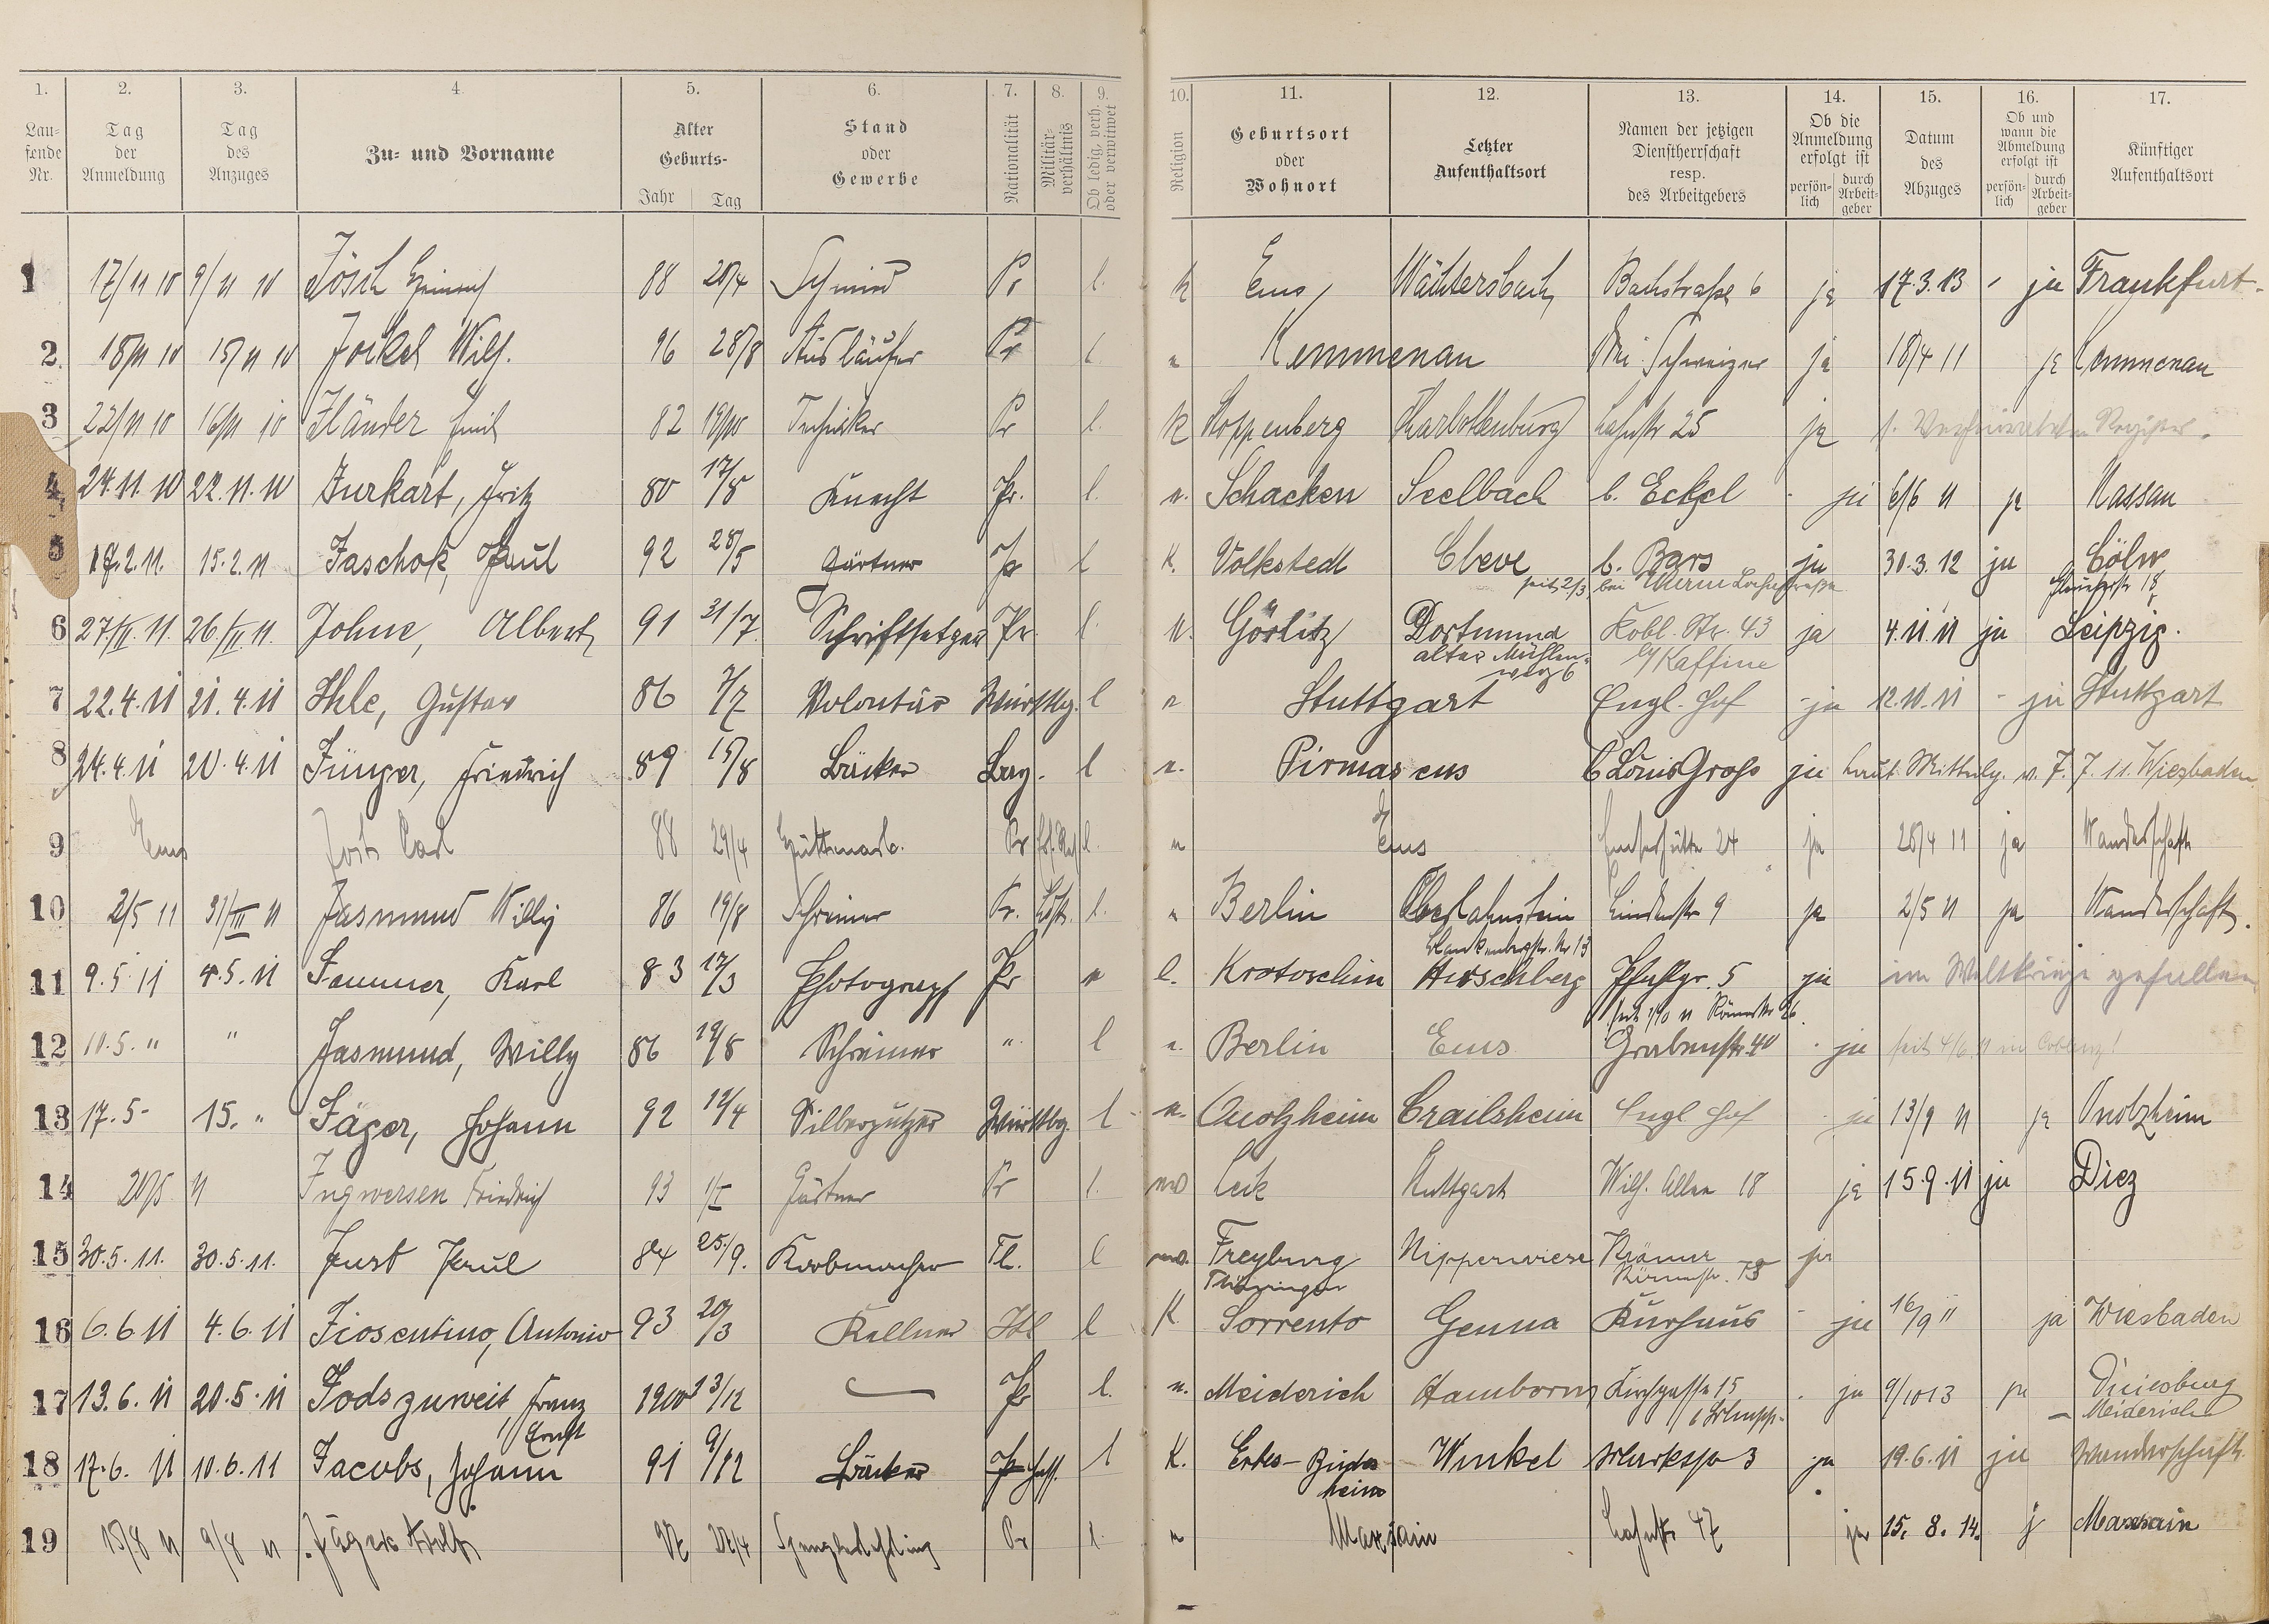 1. 2. 3. 4. 5. 6. 7. 8. 9. 10. 11. 12. 13. 14. 15. 16. 17.
Lau-
fende
Nr.
Tag
der
Anmeldung
Tag
des
Anzuges
Zu- und Vorname
Alter
Geburts-
Jahr Tag
Stand
oder
Gewerbe
Nationalität
Militär-
verhältnis
Ob ledig, verh.
oder verwitwet
Religion
Geburtsort
oder
Wohnort
Letzter
Aufenthaltsort
Namen der jetzigen
Dienstherrschaft
resp.
des Arbeitgebers
Ob die
Anmeldung
erfolgt ist
persön-
lich
durch
Arbeit-
geber
Datum
des
Abzuges
Ob und
wann die
Abmeldung
erfolgt ist
persön-
lich
durch
Arbeit-
geber
Künftiger
Aufenthaltsort
1 17/11 10 9/11 10 Jösch Heinrich 88 20/4 Schmied Pr l. k Ems Wächtersbach Bachstraße 6 ja 17.3.13 - ja Frankfurt
2. 18/11 10 15/11 10 Jockel Wilh. 96 28/8 Ausläufer Pr l Kemmenau Schweizer ja 18/4 11 ja Kemmenau
3 22/11 10 16/11 10 Jländer Emil 82 19/10 Techniker Pr l. k Koppenberg Charlottenburg Lahnstr 25 ja
4. 24.11.10 22.11.10 Jurkart, Fritz 80 17/8 Knecht Pr. l. Schacken Seelbach b. Eckel - ja 6/6 11 ja Nassau
5 17.2.11. 15.2.11 Jaschok, Paul 92 28/5 Gärtner Pr l K. Volkstedt Cleve b. Bars ja 30.3.12 ja Cöln
seit 2/3 bei
6 27/II.11. 26/II.11. Johne, Albert 91 31/7 Schriftsetzer Pr. l. Görlitz Dortmund Kobl. Str. 43 ja 4.11.11 ja Leipzig.
alter Mühlen-
weg 6
b/Kaffine
7 22.4.11 21.4.11 Ihle, Gustav 86 7/7 Volontär Württbg. l Stuttgart Engl. Hof - ja 12.10.11 - ja Stuttgart
8 24.4.11 20.4.11 Jünger, Friedrich 89 15/8 Bäcker Bay. l Pirmasens b Louis Groß ja laut Mitteilg. v. 7.7.11. Wiesbaden
9 Ems Jost Carl 88 29/4 Hüttenarb. Pr l. Ems Emserhütte 24 ja 28/4 11 ja Wanderschaft
10 2/5 11 31/III 11 Jasmund Willy 86 19/8 Schreiner Pr. l. Berlin Oberlahnstein Lindenstr 9 ja 2/5 11 ja Wanderschaft.
11 9.5.11 4.5.11 Jammer, Karl 83 17/3 Photograph Pr Krotoschin Hirschberg Pfahlgr. 5 ja im Weltkriege gefallen
seit 1/10 11 Römerstr 26
12 10.5. " " Jasmund, Willy 86 19/8 Schreiner " l Berlin Ems Grabenstr. 40 - ja seit 4/6 11 in Coblenz!
13 17.5- 15. " Jäger, Johann 92 12/4 Silberputzer Württbg. l Onolzheim Crailsheim Engl Hof - ja 13/9 11 ja Onolzheim
14 20/5 11 Ingwersen Friedrich 93 Gärtner Pr l. Leck Stuttgart Wilh. Allee 18 ja 15.9.11 ja Diez
15 30.5.11. 30.5.11. Just Paul 84 25./9. Korbmacher l Freyburg Nipperwiese Krämer ja
Thüringen Römerstr. 73
16 6.6.11 4.6.11 Fiosentino, Antonio 93 20/3 Kellner Itl l K Sorrento Genua Kurhaus - ja 16/9 11 ja Wiesbaden
17 13.6.11 20.5.11 Jodszuweit, Franz 1900 13/12 Pr l. Meiderich Hamborn Kirchgasse 15 - ja 9/10 13 ja Duisburg
Ernst - Meiderich
18 17.6.11 10.6.11 Jacobs, Johann 91 9/12 Bäcker l K. Erbes-Büdes- Winkel Marktstr 3 ja 19.6.11 ja Wanderschaft.
heim
19 15/8 11 9/8 11 Jäger Adolf 97 Spenglerlehrling Pr l. Maxsain Lahnstr 47 ja 15. 8. 14. j Maxsain